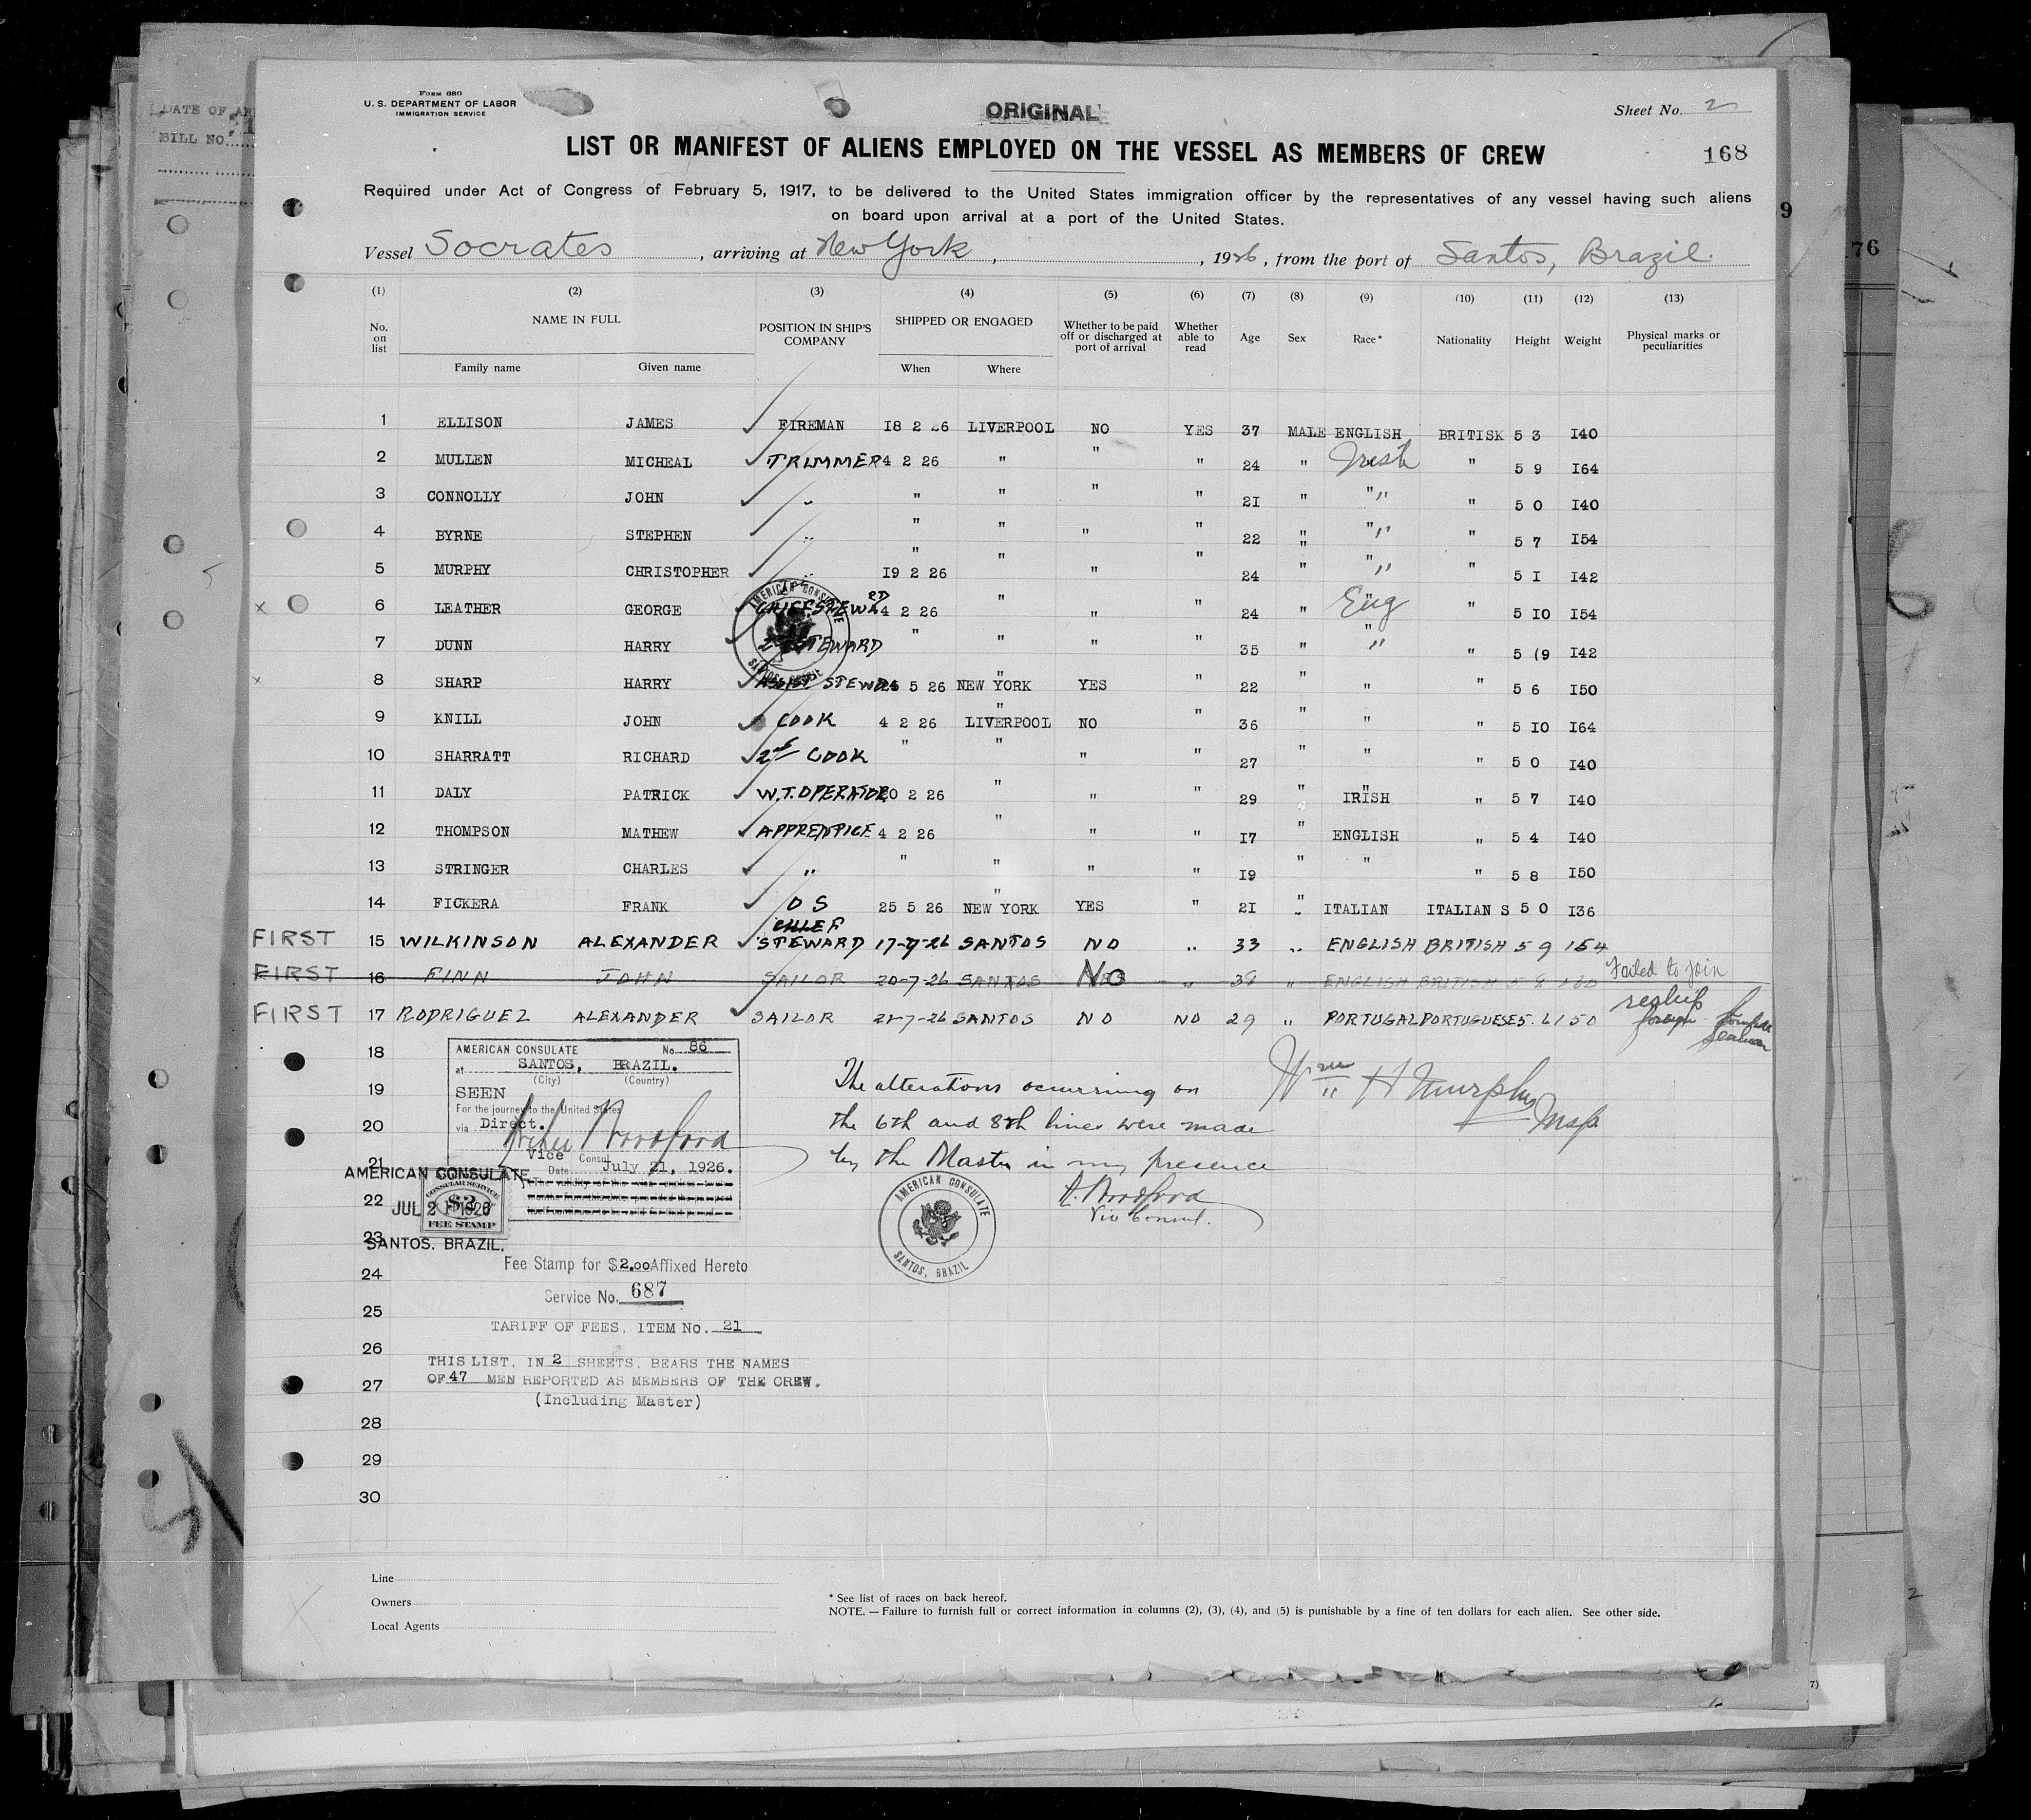 DATE OF AR
BILL NO.
FORM 680
U. S. DEPARTMENT OF LABOR
IMMIGRATION SERVICE
ORIGINAL
Sheet No. 2
LIST OR MANIFEST OF ALIENS EMPLOYED ON THE VESSEL AS MEMBERS OF CREW
168
Required under Act of Congress of February 5, 1917, to be delivered to the United States immigration officer by the representatives of any vessel having such aliens
on board upon arrival at a port of the United States.
9
76
Vessel Socrates, arriving at New York, 1926, from the port of Santos, Brazil.
(1) (2) (3) (4) (5) (6) (7) (8) (9) (10) (11) (12) (13)
No. on list NAME IN FULL Family name Given name POSITION IN SHIP'S COMPANY SHIPPED OR ENGAGED When Where Whether to be paid off or discharged at port of arrival Whether able to read Age Sex Race* Nationality Height Weight Physical marks or peculiarities
1 ELLISON JAMES FIREMAN 18 2 26 LIVERPOOL NO YES 37 MALE ENGLISH BRITISK 5 3 140
2 MULLEN MICHEAL TRIMMER 4 2 26 " " " 24 " Irish " 5 9 164
3 CONNOLLY JOHN " " " " " 21 " " " 5 0 140
4 BYRNE STEPHEN " " " " " 22 " " " 5 7 154
5 MURPHY CHRISTOPHER " 19 2 26 " " " 24 " " " 5 1 142
x 6 LEATHER GEORGE CHIEF STEWARD 4 2 26 " " " 24 " Eng " 5 10 154
7 DUNN HARRY 2nd STEWARD " " " " 35 " " " 5 (9 142
x 8 SHARP HARRY ASSIST STEWD 5 26 NEW YORK YES " 22 " " " 5 6 150
9 KNILL JOHN COOK 4 2 26 LIVERPOOL NO " 36 " " " 5 10 164
10 SHARRATT RICHARD 2nd COOK " " " " 27 " " " 5 0 140
11 DALY PATRICK W.T. OPERATOR 20 2 26 " " " 29 " IRISH " 5 7 140
12 THOMPSON MATHEW APPRENTICE 4 2 26 " " " 17 " ENGLISH " 5 4 140
13 STRINGER CHARLES " " " " " 19 " " " 5 8 150
14 FICKERA FRANK O S 25 5 26 NEW YORK YES " 21 " ITALIAN ITALIAN S 5 0 136
FIRST 15 WILKINSON ALEXANDER CHIEF STEWARD 17-7-26 SANTOS NO " 33 " ENGLISH BRITISH 5 9 154
FIRST 16 FINN JOHN SAILOR 20-7-26 SANTOS No " 38 " ENGLISH BRITISH 5 8 180 Failed to join
FIRST 17 RODRIGUEZ ALEXANDER SAILOR 21-7-26 SANTOS NO NO 29 " PORTUGAL PORTUGUESE 5.6 150 reship foreign seaman
18
19
20
21
22
23
24
25
26
27
28
29
30
AMERICAN CONSULATE No. 86
at SANTOS, BRAZIL.
(City) (Country)
SEEN
For the journey to the United States
via Direct.
Vice Consul
Date July 21, 1926.
AMERICAN CONSULATE
JUL 21 1926
SANTOS, BRAZIL.
CONSULAR SERVICE
$2
FEE STAMP
Fee Stamp for $2.00 Affixed Hereto
Service No. 687
TARIFF OF FEES, ITEM No. 21
THIS LIST, IN 2 SHEETS, BEARS THE NAMES
OF 47 MEN REPORTED AS MEMBERS OF THE CREW.
(Including Master)
The alterations ocurring on
the 6th and 8th lines were made
by the Master in my presence
A. Woodford
Vice Consul.
AMERICAN CONSULATE
SANTOS, BRAZIL
Wm H Murphy
Line
Owners
Local Agents
* See list of races on back hereof.
NOTE. — Failure to furnish full or correct information in columns (2), (3), (4), and (5) is punishable by a fine of ten dollars for each alien. See other side.